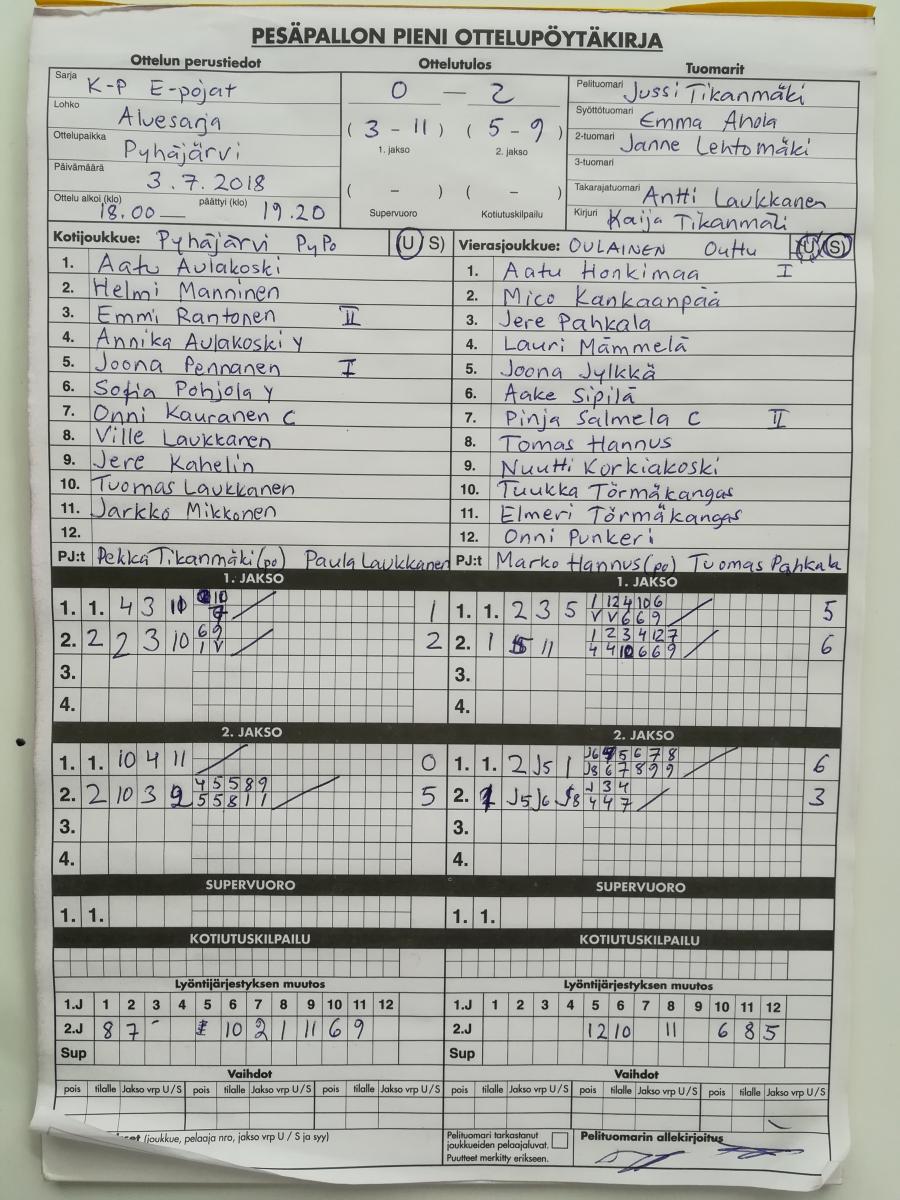 PESÄPALLON PIENI OTTELUPÖYTÄKIRJA
Ottelun perustiedot
Ottelutulos
Tuomarit
Sarja K-P E-pojat
Lohko Aluesarja
Ottelupaikka Pyhäjärvi
Päivämäärä 3.7.2018
Ottelu alkoi (klo) 18.00 päättyi (klo) 19.20
0 — 2
(3 – 11) (5 – 9)
1. jakso 2. jakso
( – ) ( – )
Supervuoro Kotiutuskilpailu
Pelituomari Jussi Tikanmäki
Syöttötuomari Emma Ahola
2-tuomari Janne Lehtomäki
3-tuomari
Takarajatuomari Antti Laukkanen
Kirjuri Kaija Tikanmäki
Kotijoukkue: Pyhäjärvi PyPo (U S)
1. Aatu Aulakoski
2. Helmi Manninen
3. Emmi Rantonen II
4. Annika Aulakoski Y
5. Joona Pennanen I
6. Sofia Pohjola Y
7. Onni Kauranen C
8. Ville Laukkanen
9. Jere Kahelin
10. Tuomas Laukkanen
11. Jarkko Mikkonen
12.
PJ:t Pekka Tikanmäki (po) Paula Laukkanen
Vierasjoukkue: OULAINEN OuHu (U S)
1. Aatu Honkimaa I
2. Mico Kankaanpää
3. Jere Pahkala
4. Lauri Mämmelä
5. Joona Jylkkä
6. Aake Sipilä
7. Pinja Salmela C II
8. Tomas Hannus
9. Nuutti Korkiakoski
10. Tuukka Törmäkangas
11. Elmeri Törmäkangas
12. Onni Punkeri
PJ:t Marko Hannus (po) Tuomas Pahkala
1. JAKSO
1. 1. 4 3 10 1
2. 2 2 3 10 6 9 2
1 V
3.
4.
1. JAKSO
1. 1. 2 3 5 1 12 4 10 6 5
V V 6 6 9
2. 1 5 11 1 2 3 4 12 7 6
4 4 10 6 6 9
3.
4.
2. JAKSO
1. 1. 10 4 11 0
2. 2 10 3 9 4 5 5 8 9 5
5 5 8 1 1
3.
4.
2. JAKSO
1. 1. 2 J5 1 J6 5 6 7 8 6
J8 6 7 8 9 9
2. J5 J6 J8 J 3 4 3
4 4 7
3.
4.
SUPERVUORO
1. 1.
SUPERVUORO
1. 1.
KOTIUTUSKILPAILU
KOTIUTUSKILPAILU
Lyöntijärjestyksen muutos
1.J 1 2 3 4 5 6 7 8 9 10 11 12
2.J 8 7 - 10 2 1 11 6 9
Sup
Lyöntijärjestyksen muutos
1.J 1 2 3 4 5 6 7 8 9 10 11 12
2.J 12 10 11 6 8 5
Sup
Vaihdot
pois tilalle Jakso vrp U / S pois tilalle Jakso vrp U / S pois tilalle Jakso vrp U / S
Vaihdot
pois tilalle Jakso vrp U / S pois tilalle Jakso vrp U / S pois tilalle Jakso vrp U / S
(joukkue, pelaaja nro, jakso vrp U / S ja syy)
Pelituomari tarkastanut
joukkueiden pelaajaluvat.
Puutteet merkitty erikseen.
Pelituomarin allekirjoitus